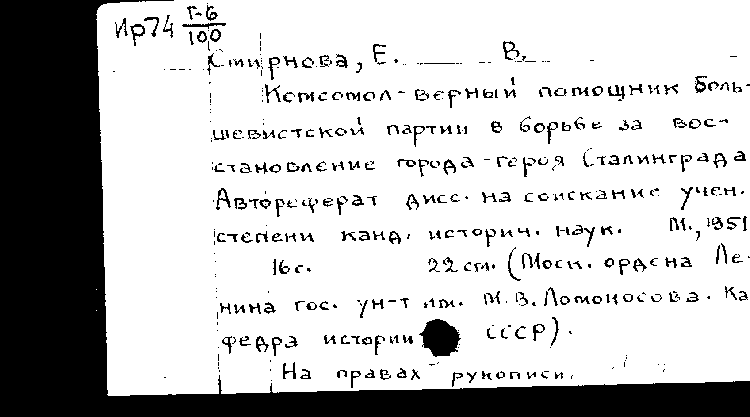 Ир74 Г-6/100
Смирнова, Е. В.
Комсомол-верный помощник боль-
шевистской партии в борьбе за вос-
становление города-героя Сталинграда
Автореферат дисс. на соискание учен.
степени канд. историч. наук. М., 1951
16 с. 22 см. (Моск. ордена Ле-
нина гос. ун-т им. М.В. Ломоносова. Ка
федра истории СССР).
На правах рукописи.